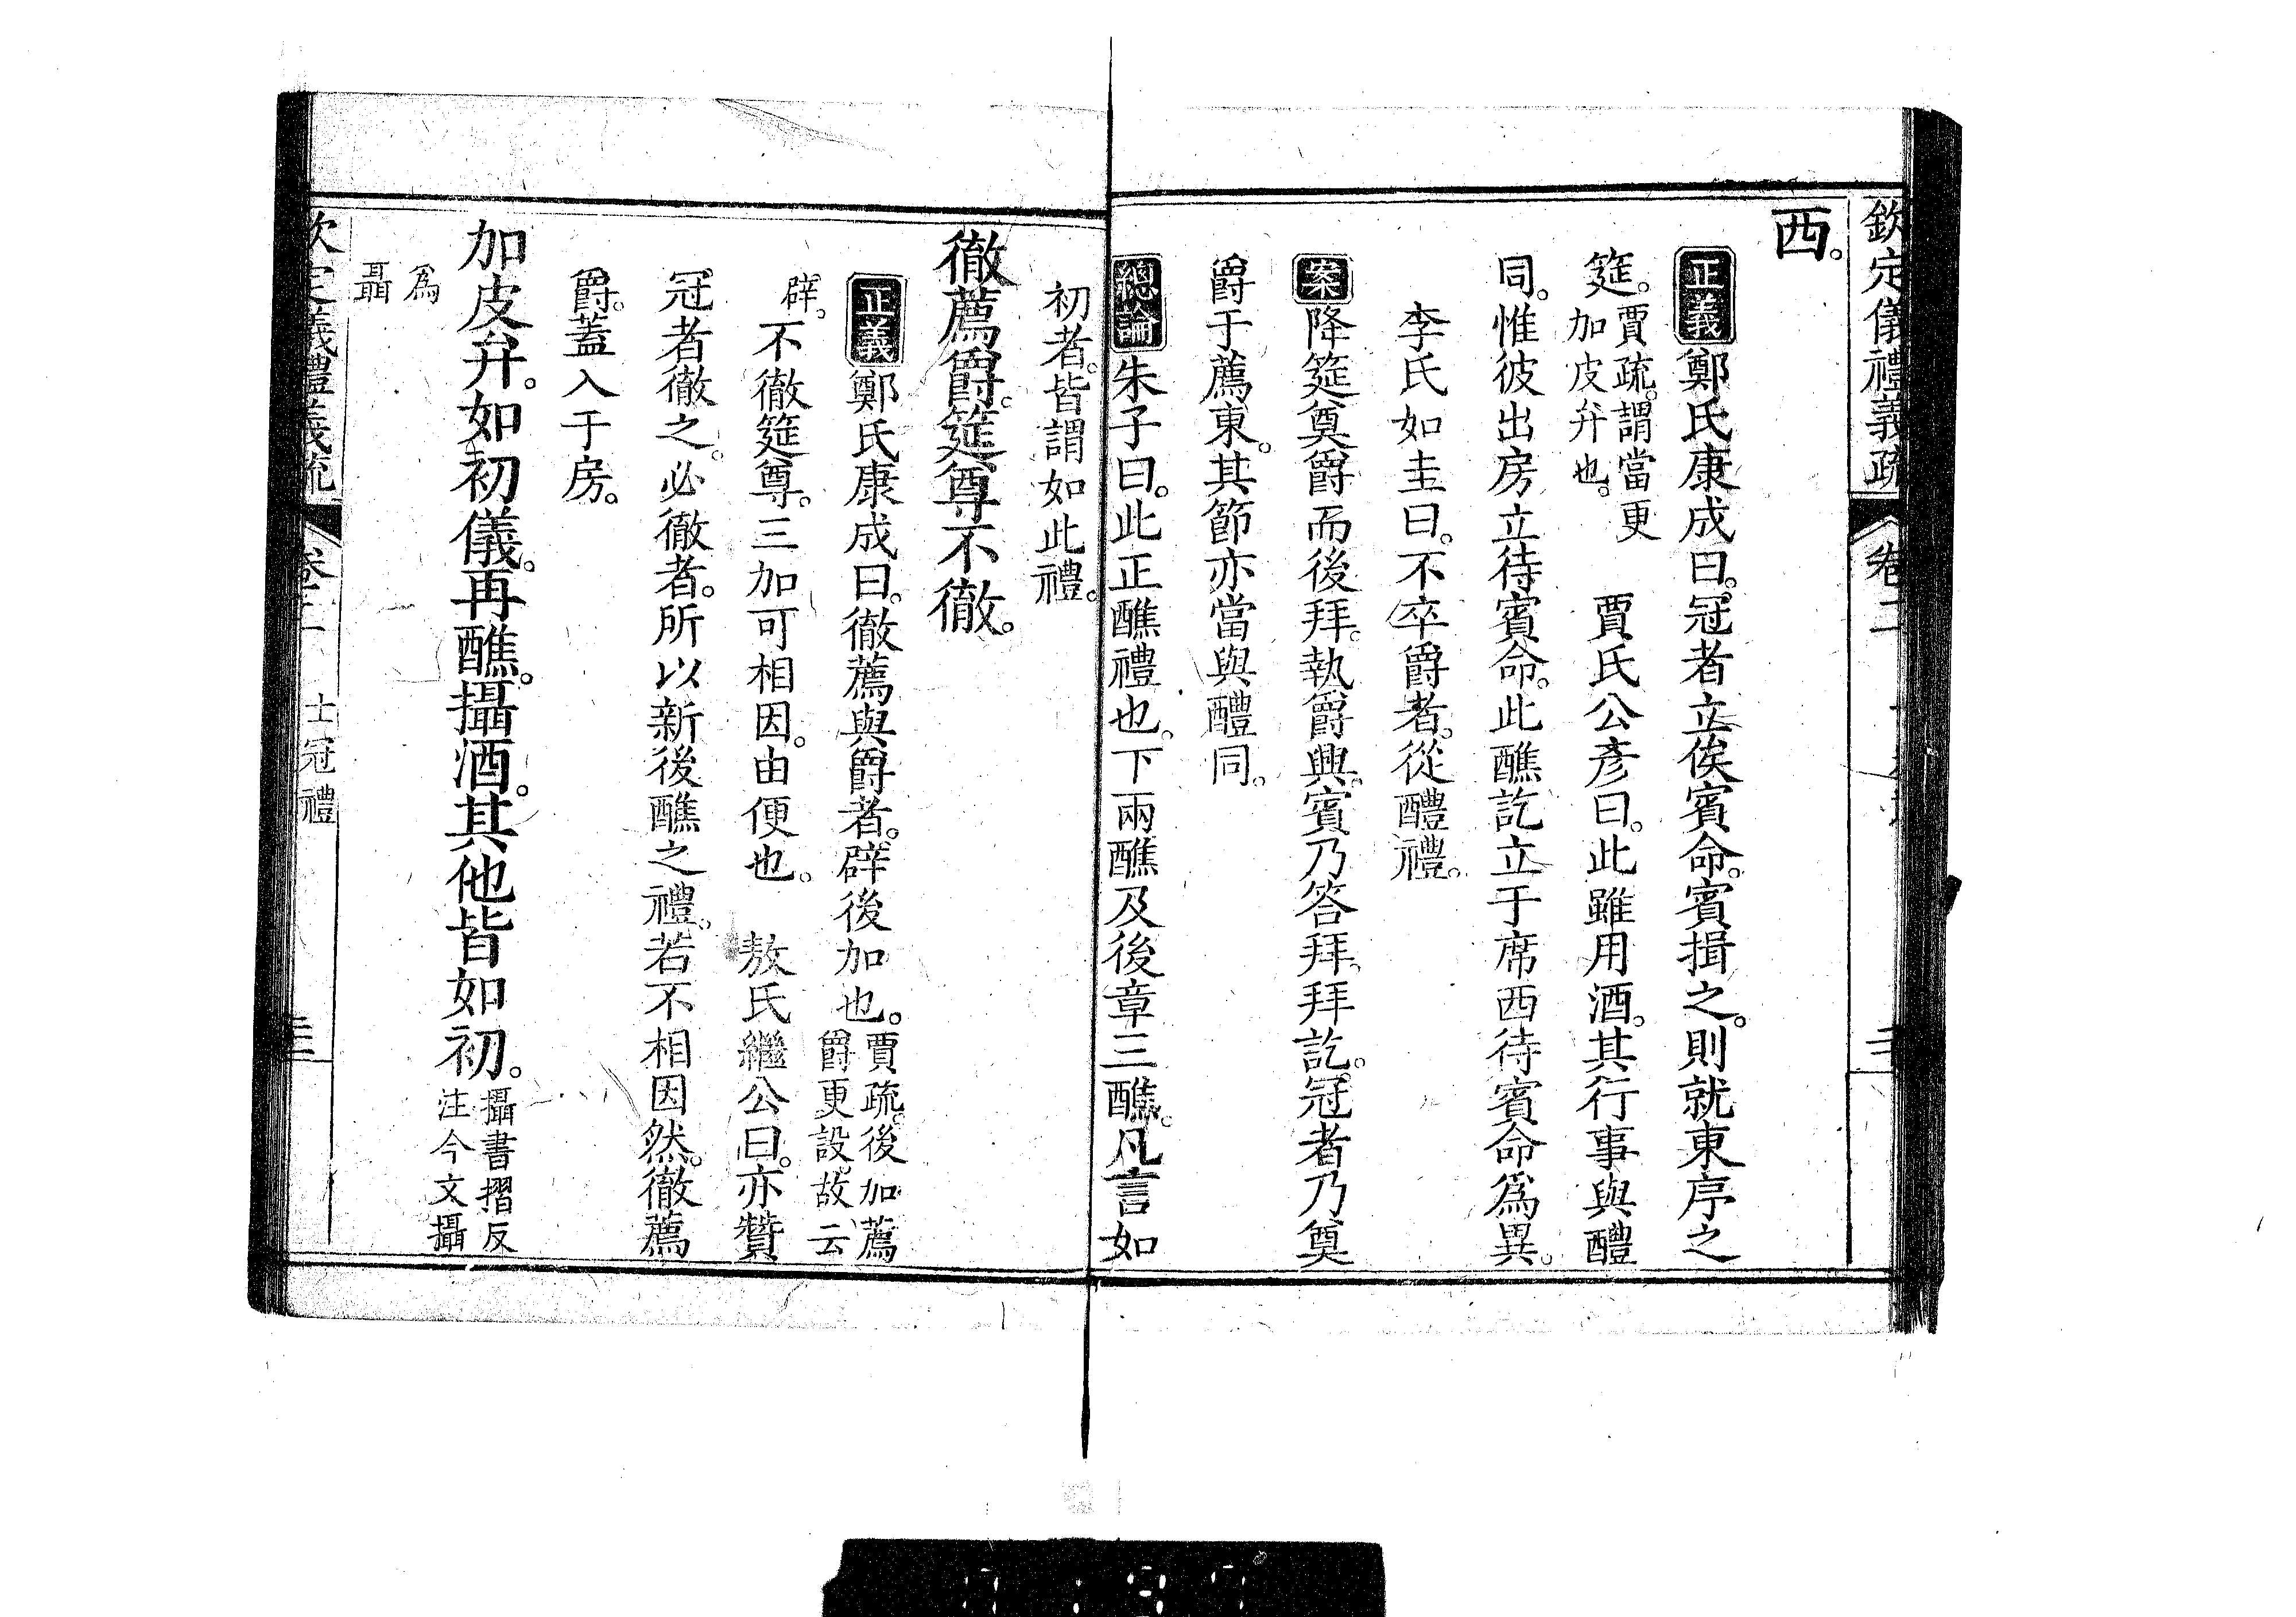 欽定儀禮義疏 卷二
西。
正義 鄭氏康成曰。冠者立俟賓命。賓揖之。則就東序之
筵。賈疏。謂當更加皮弁也。 賈氏公彥曰。此雖用酒。其行事與醴
同。惟彼出房立待賓命。此醮訖立于席西待賓命爲異。
李氏如圭曰。不卒爵者。從醴禮。
案 降筵奠爵而後拜。執爵興。賓乃答拜。拜訖。冠者乃奠
爵于薦東。其節亦當與醴同。
總論 朱子曰。此正醮禮也。下兩醮及後章三醮。凡言如
初者。皆謂如此禮。
徹薦爵。筵尊不徹。
正義 鄭氏康成曰。徹薦與爵者。辟後加也。賈疏。後加薦爵更設。故云
辟。不徹筵尊。三加可相因。由便也。 敖氏繼公曰。亦贊
冠者徹之。必徹者。所以新後醮之禮。若不相因然。徹薦
爵。蓋入于房。
加皮弁。如初儀。再醮。攝酒。其他皆如初。攝書摺反注今文攝
爲聶
欽定儀禮義疏 卷二 士冠禮